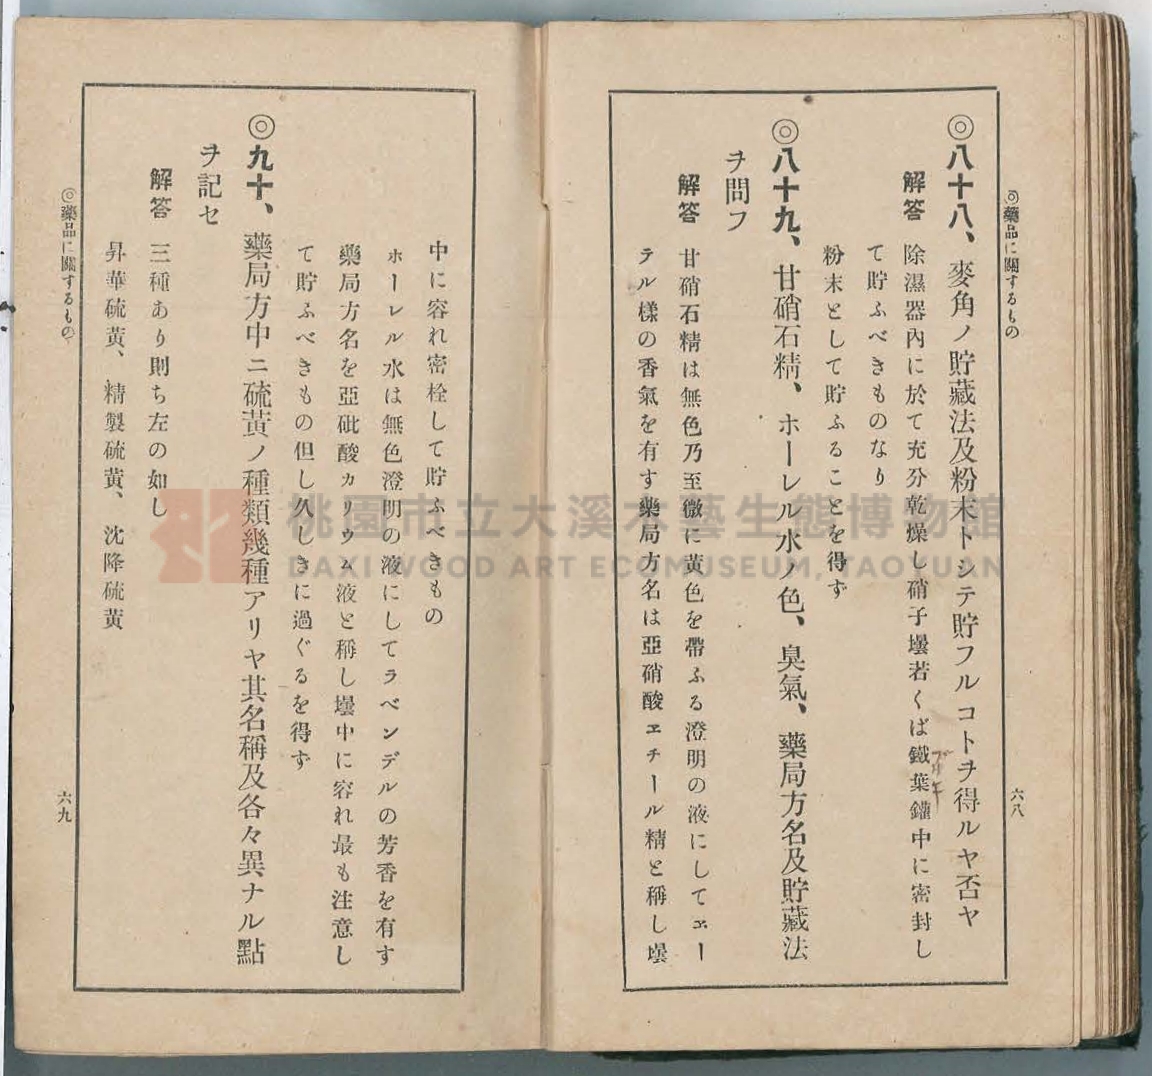 ◎藥品に關するもの
◎八十八、麥角ノ貯藏法及粉末トシテ貯フルコトヲ得ルヤ否ヤ
解答 除濕器內に於て充分乾燥し硝子壜若くば鐵葉鑵中に密封し
て貯ふべきものなり
粉末として貯ふることを得ず
◎八十九、甘硝石精、ホーレル水ノ色、臭氣、藥局方名及貯藏法
ヲ問フ
解答 甘硝石精は無色乃至微に黃色を帶ふる澄明の液にしてエー
テル樣の香氣を有す藥局方名は亞硝酸エチール精と稱し壜
六八
中に容れ密栓して貯ふべきもの
ホーレル水は無色澄明の液にしてラベンデルの芳香を有す
藥局方名を亞砒酸カリウム液と稱し壜中に容れ最も注意し
て貯ふべきもの但し久しきに過ぐるを得ず
◎九十、藥局方中ニ硫黃ノ種類幾種アリヤ其名稱及各々異ナル點
ヲ記セ
解答 三種あり則ち左の如し
昇華硫黃、精製硫黃、沈降硫黃
◎藥品に關するもの
六九
桃園市立大溪木藝生態博物館
DAXI WOOD ART ECOMUSEUM, TAOYUAN